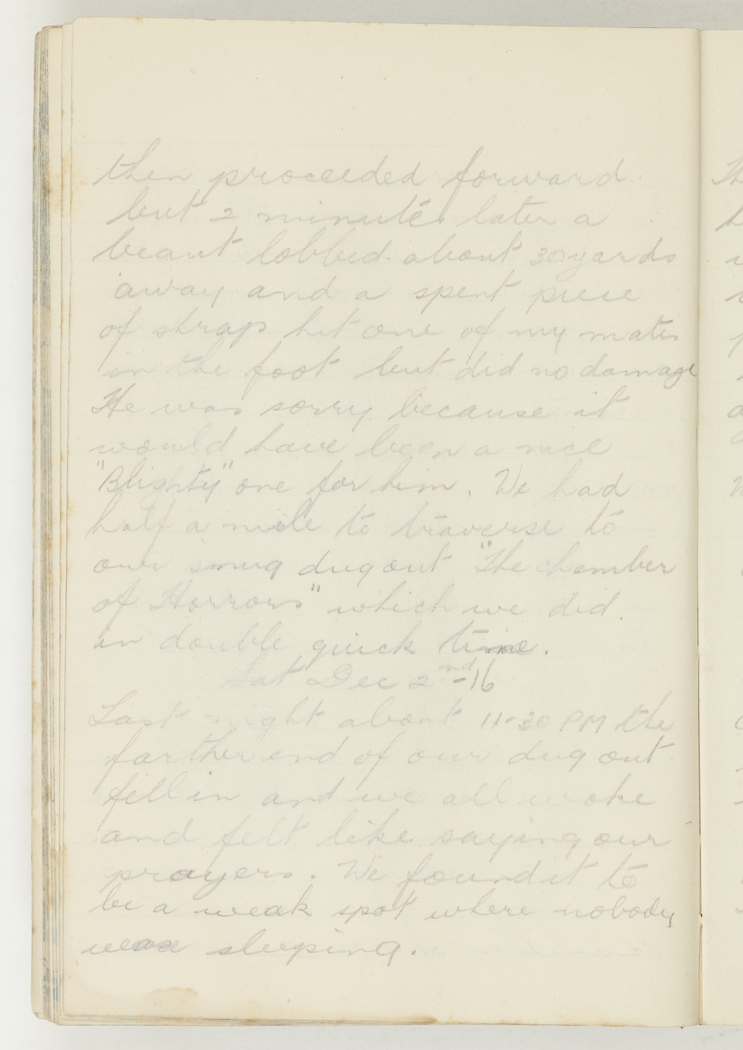 then proceeded forward.
but 2 minutes later a
beaut lobbed about 30 yards
away and a spent piece
of shrap hit one of my mates
in the foot but did no damage
He was sorry because it
would have been a nice
"Blighty" one for him. We had
half a mile to traverse to
our snug dug out "The chamber
of Horrors" which we did
in double quick time.
Sat Dec 2nd -16
Last night about 11-30 PM the
farther end of our dug out
fell in and we all woke
and felt like saying our
prayers. We found it to
be a weak spot where nobody
was sleeping.